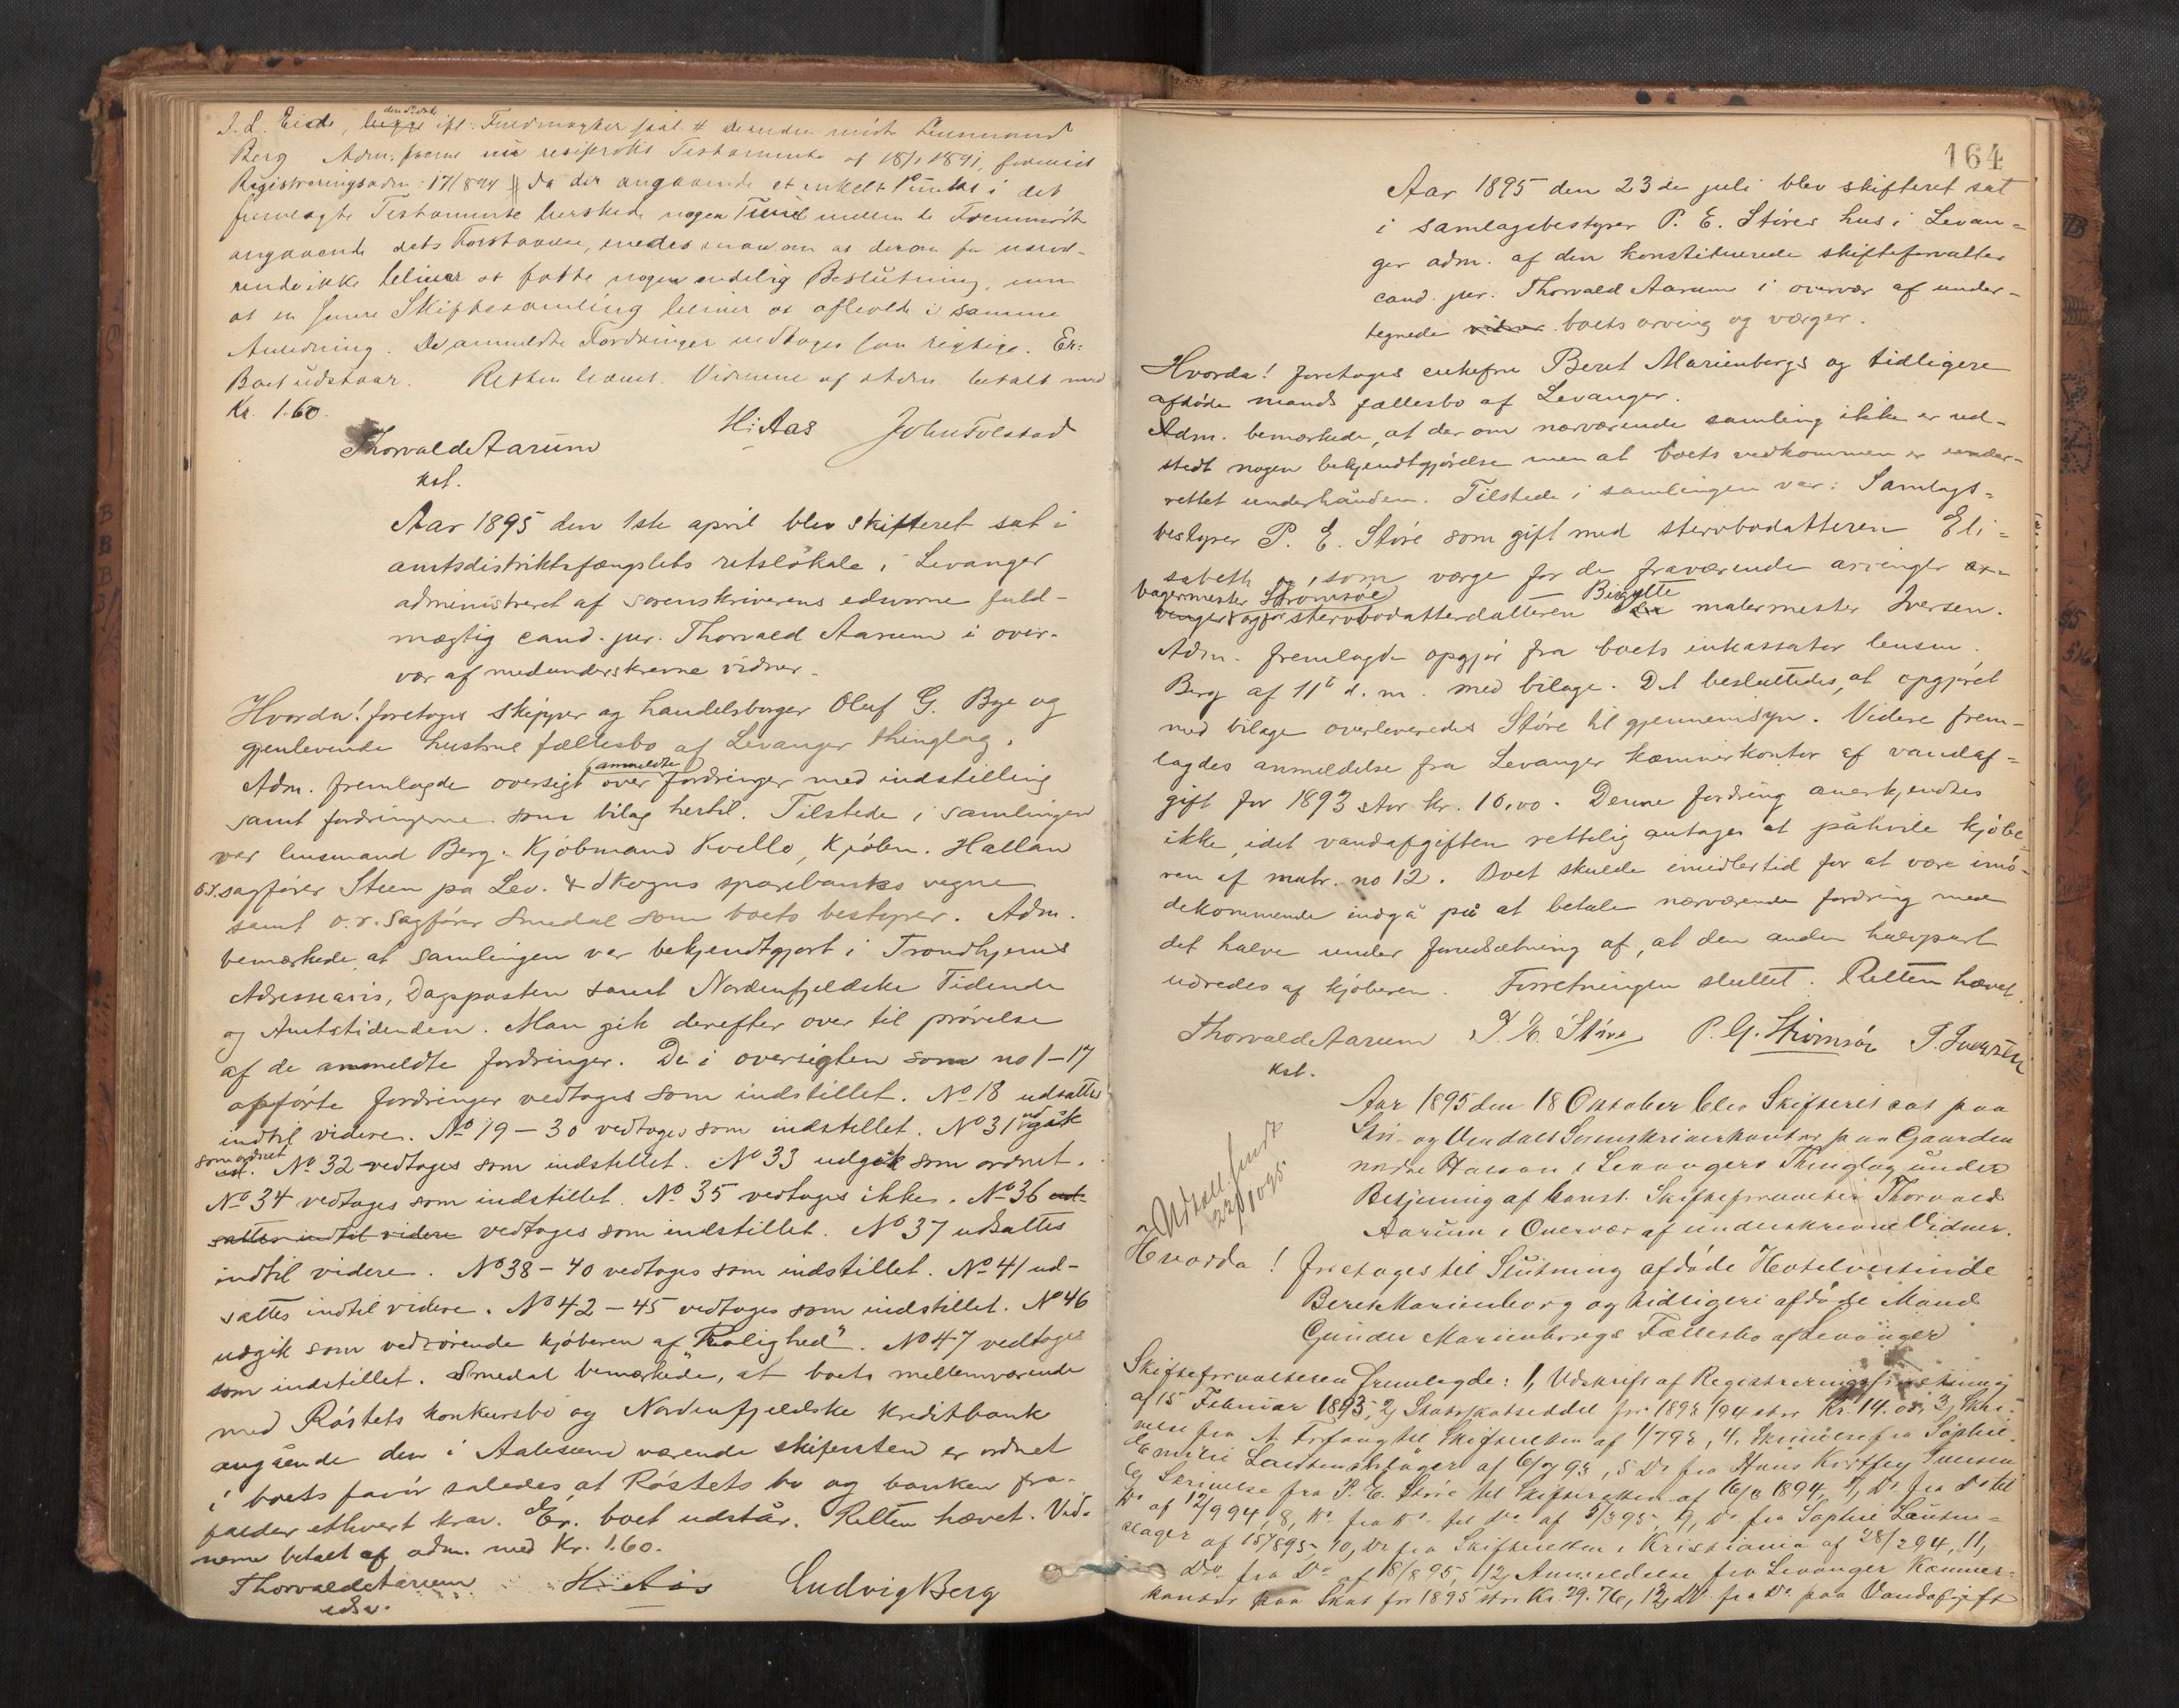 J. L. Eide, ifl. Fuldmagter
Berg Adm: frem resiprokt Testamente af 18/1 1891,
Registreringsadm: 17/894 da der angaaende et enkelt Punkt i det
fremlagte Testamente herskede nogen Tvivl mellem de Fremmødte
angaaende dets Forstaaelse, enedes man om at derom for nærvæ-
rende ikke bliver at fatte nogen endelig Beslutning, men
at en senere Skiftesamling bliver at afholde i samme
Anledning. De anmeldte Fordringer vedtoges som rigtige. Er:
Boet udstaar. Retten hævet. Vidnerne af Adm. betalt med
Kr. 1.60.
Thorvald Aarum H: Aas John Folstad
kst.
Aar 1895 den 1ste april blev skifteret sat i
amtsdistriktsfængslets retslokale i Levanger
administreret af sorenskriverens edsvorne fuld-
mægtig cand. jur. Thorvald Aarum i over-
vær af medunderskrevne vidner.
Hvorda! foretoges skipper og handelsborger Oluf G. Bye og
gjenlevende hustrus fællesbo af Levanger thinglag.
Adm. fremlagde oversigt over anmeldte fordringer med indstilling
samt fordringerne som bilag hertil. Tilstede i samlingen
var lensmand Berg. Kjøbmand Kvello, Kjøbm. Hallan
o.r. sagfører Steen pa Lev. & Skogns sparebanks vegne
samt o.r. sagfører Smedal som boets bestyrer. Adm.
bemærkede, at samlingen var bekjendtgjort i Trondhjems
Adresseavis, Dagsposten samt Nordenfjeldske Tidende
og Amtstidenden. Man gik derefter over til prøvelse
af de anmeldte fordringer. De i oversigten som no 1-17
opførte fordringer vedtoges som indstillet. No 18 udsattes
indtil videre. No 19-30 vedtoges som indstillet. No 31 udgik
som ordnet ud. No 32 vedtoges som indstillet. No 33 udgik som ordnet.
No 34 vedtoges som indstillet. No 35 vedtoges ikke. No 36 ud-
sattes indtil videre vedtoges som indstillet. No 37 udsattes
indtil videre. No 38-40 vedtoges som indstillet. No 41 ud-
sattes indtil videre. No 42-45 vedtoges som indstillet. No 46
udgik som vedrørende kjøberen af "Rolighed". No 47 vedtoges
som indstillet. Smedal bemærkede, at boets mellemværende
med Røstets konkursbo og Nordenfjeldske kreditbank
angående den i Aalesund værende skiferstein er ordnet
i boets favør saledes at Røstets bo og banken fra-
falder ethvert krav. Er. boet udstår. Retten hævet. Vid-
nerne betalt af adm. med Kr. 1.60.
Thorvald Aarum H. Aas Ludvig Berg
edsv.
164
Aar 1895 den 23de juli blev skifteret sat
i samlagsbestyrer P. E. Støres hus i Levan-
ger adm. af den konstituerede skifteforvalter
cand. jur. Thorvald Aarum i overvær af under-
tegnede vidner boets arving og værger.
Hvorda! foretoges enkefru Beret Marienborgs og tidligere
afdøde mands fællesbo af Levanger.
Adm. bemærkede, at der om nærværende samling ikke er ud-
stedt nogen bekjendtgjørelse men at boets vedkommen er under-
rettet underhånden. Tilstede i samlingen var: Samlags-
bestyrer P. E. Støre som gift med stervbodatteren Eli-
sabeth og, som værge for de fraværende arvinger ar-
vinger bagermester Strømsøe og for stervbodatterdatteren Birgitte malermester Iversen.
Adm. fremlagde opgjør fra boets inkassator lensm.
Berg af 11te d. m. med bilage. Det besluttedes, at opgjøret
med bilage overleveredes Støre til gjennemsyn. Videre frem-
lagdes anmeldelse fra Levanger kæmnerkontor af vandaf-
gift for 1893 stor kr. 10,00. Denne fordring anerkjendtes
ikke, idet vandafgiften rettelig antages at påhvile kjøbe-
ren af matr. no 12. Boet skulde imidlertid for at være imø-
dekommende indgå på at betale nærværende fordring med
det halve under forudsætning af, at den anden halvpart
udredes af kjøberen. Forretningen sluttet. Retten hævet.
Thorvald Aarum P. E. Støre P. G. Strømsøe P. Iversen
kst.
Aar 1895 den 18 Oktober blev Skifteret sat paa
Stør- og Værdals Sorenskriverkontor paa Gaarden
nordre Halsan i Levangers Thinglag under
Betjening af konst. Skifteforvalter Thorvald
Aarum i Overvær af underskrevne Vidner.
Udsatt. sendt
22/10 95
Hvorda! foretoges til Slutning afdøde Hotelvertinde
Beret Marienborg og tidligere afdøde Mand
Gunder Marienborgs Fællesbo af Levanger
Skifteforvalteren fremlagde: 1, Udskrift af Registreringsforretning
af 15 Februar 1893, 2, Skatteskatseddel for 1893/94 stor Kr. 14.00, 3, Skri-
velse fra A. til Skifteretten af 1/793, 4, Skrivelse fra Sophie
Emilie af 93, 5 Do fra Hans Iversen
6, Skrivelse fra P. E. Støre til Skifteretten af 16/8 1894, 7, Do fra do til
Do af 12/994, 8, Do fra Do til Do af 5/395, 9, Do fra Sophie
af 15/895, 10, Do fra Skifteretten i Kristiania af 28/294, 11,
Do fra Do af 18/895, 12, Anmeldelse fra Levanger Kæmner-
kontor paa Skat for 1895 stor Kr. 29.76, 13, Do fra Do paa Vandafgift